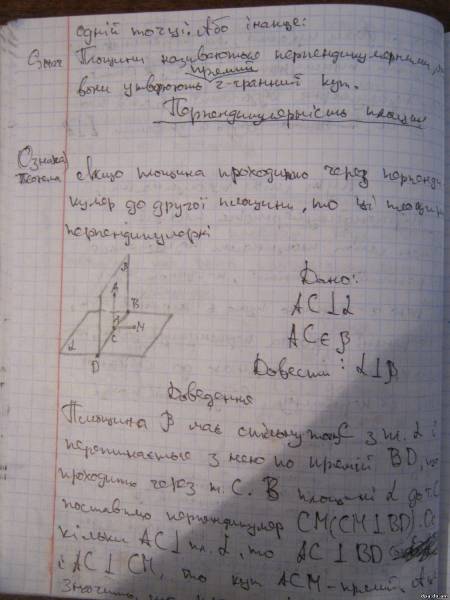 одній точці. Або інакше:
Означ Площини називаються перпендикулярними,
прямий
вони утворюють 2-гранний кут.
Перпендикулярність площин
Ознака Якщо площина проходить через перпенди
Теорема
куляр до другої площини, то ці площини
перпендикулярні
β
A
B
M
C
α
D
Дано:
AC⊥α
AC∈β
Довести: α⊥β
Доведення
Площина β має спільну точку C з пл. α і
перетинається з нею по прямій BD, що
проходить через т. C. В площині α до т. C
поставимо перпендикуляр CM (CM⊥BD). Ос
кільки AC⊥пл. α, то AC⊥BD
і AC⊥CM, то кут ACM - прямий.
значить, що